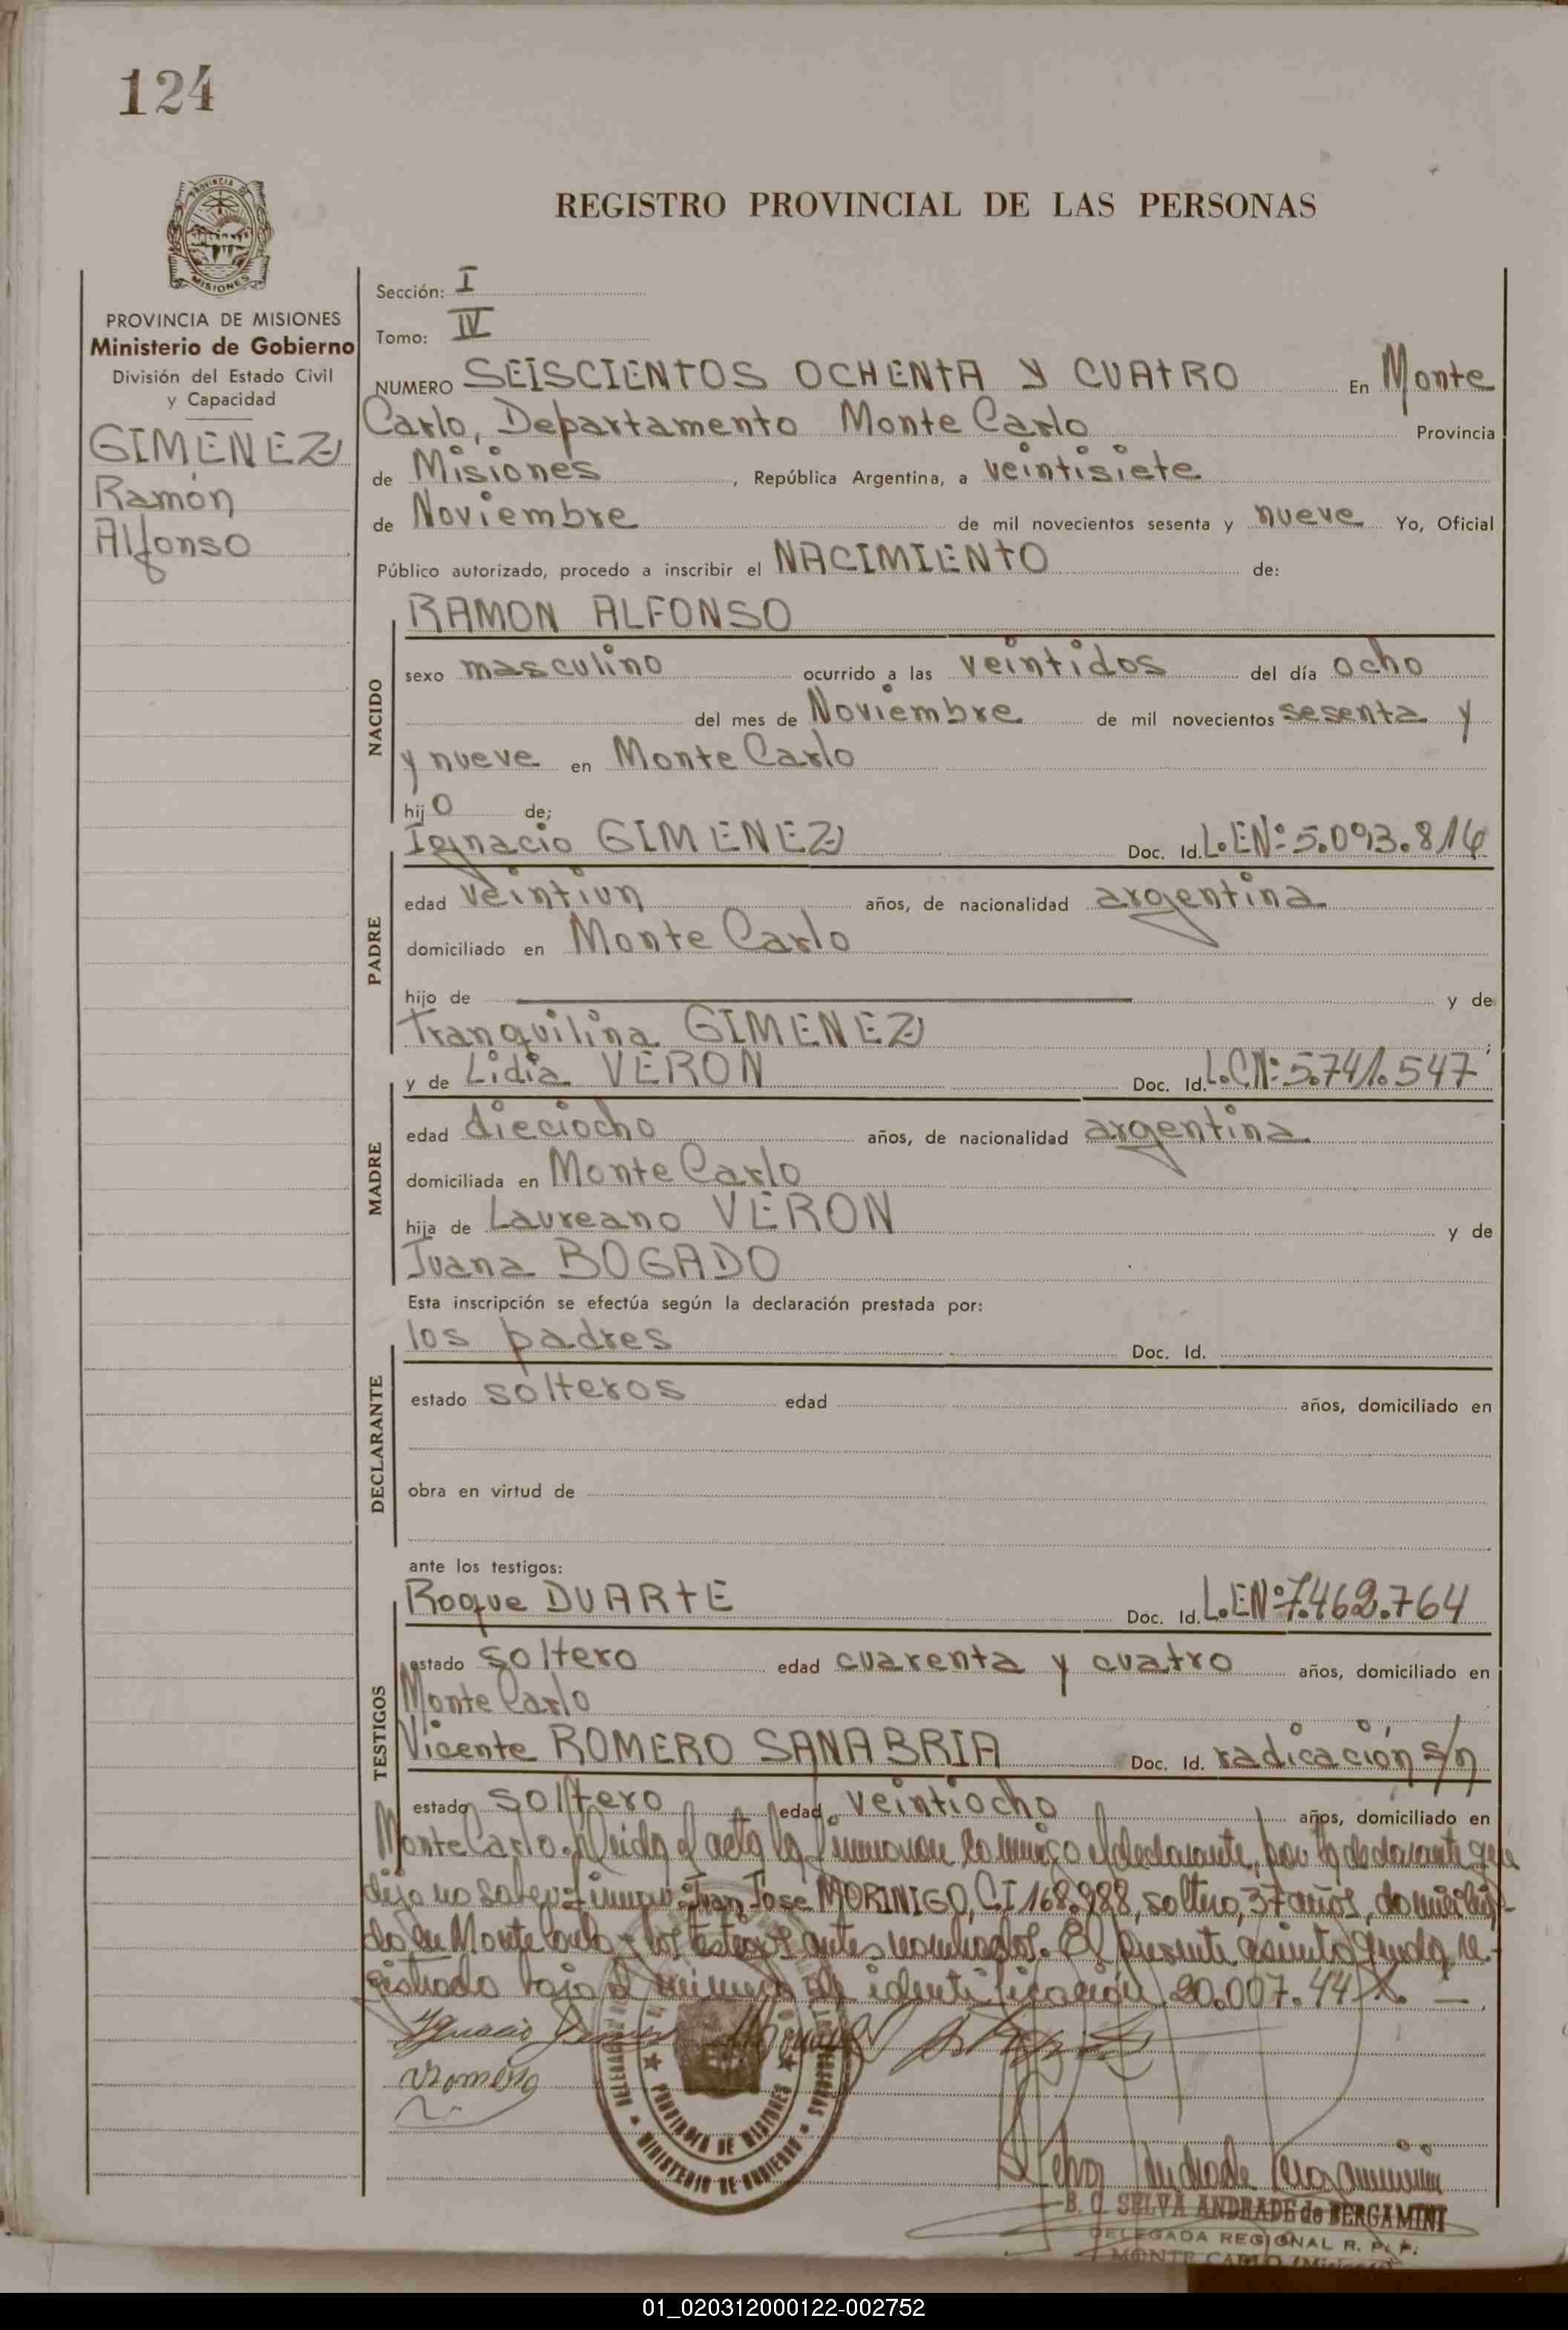 124
PROVINCIA DE
MISIONES
REGISTRO PROVINCIAL DE LAS PERSONAS
PROVINCIA DE MISIONES
Ministerio de Gobierno
División del Estado Civil
y Capacidad
GIMENEZ
Ramón
Alfonso
Sección: I
Tomo: IV
NUMERO SEISCIENTOS OCHENTA Y CUATRO En Monte
Carlo, Departamento Monte Carlo Provincia
de Misiones, República Argentina, a veintisiete
de Noviembre de mil novecientos sesenta y nueve Yo, Oficial
Público autorizado, procedo a inscribir el NACIMIENTO de:
RAMON ALFONSO
NACIDO
sexo masculino ocurrido a las veintidos del día ocho
del mes de Noviembre de mil novecientos sesenta y
y nueve en Monte Carlo
hijo de;
Ignacio GIMENEZ Doc. Id. L.EN°: 5.093.814
PADRE
edad veintiun años, de nacionalidad argentina
domiciliado en Monte Carlo
hijo de y de
Tranquilina GIMENEZ
y de Lidia VERON Doc. Id. L.CN°: 5.741.547
MADRE
edad dieciocho años, de nacionalidad argentina
domiciliada en Monte Carlo
hija de Laureano VERON y de
Juana BOGADO
Esta inscripción se efectúa según la declaración prestada por:
los padres Doc. Id.
DECLARANTE
estado solteros edad años, domiciliado en
obra en virtud de
ante los testigos:
Roque DUARTE Doc. Id. L.EN° 7.462.764
TESTIGOS
estado soltero edad cuarenta y cuatro años, domiciliado en
Monte Carlo
Vicente ROMERO SANABRIA Doc. Id. radicación s/n
estado soltero edad veintiocho años, domiciliado en
Monte Carlo. Leida el acta la firmaron conmigo el declarante, por la declarante que
dijo no saber firmar Juan José MORINIGO, CI 168.988, soltero, 37 años, domicilia-
do en Monte Carlo y los testigos antes nombrados. El presente asiento queda re-
gistrado bajo el número de identificación 20.007.44
Ignacio
VRomero
PROVINCIA DE MISIONES
MINISTERIO DE GOBIERNO
Selva Andrade Bergamini
B. C. SELVA ANDRADE de BERGAMINI
DELEGADA REGIONAL R. P. P.
MONTE CARLO (Misiones)
01_020312000122-002752